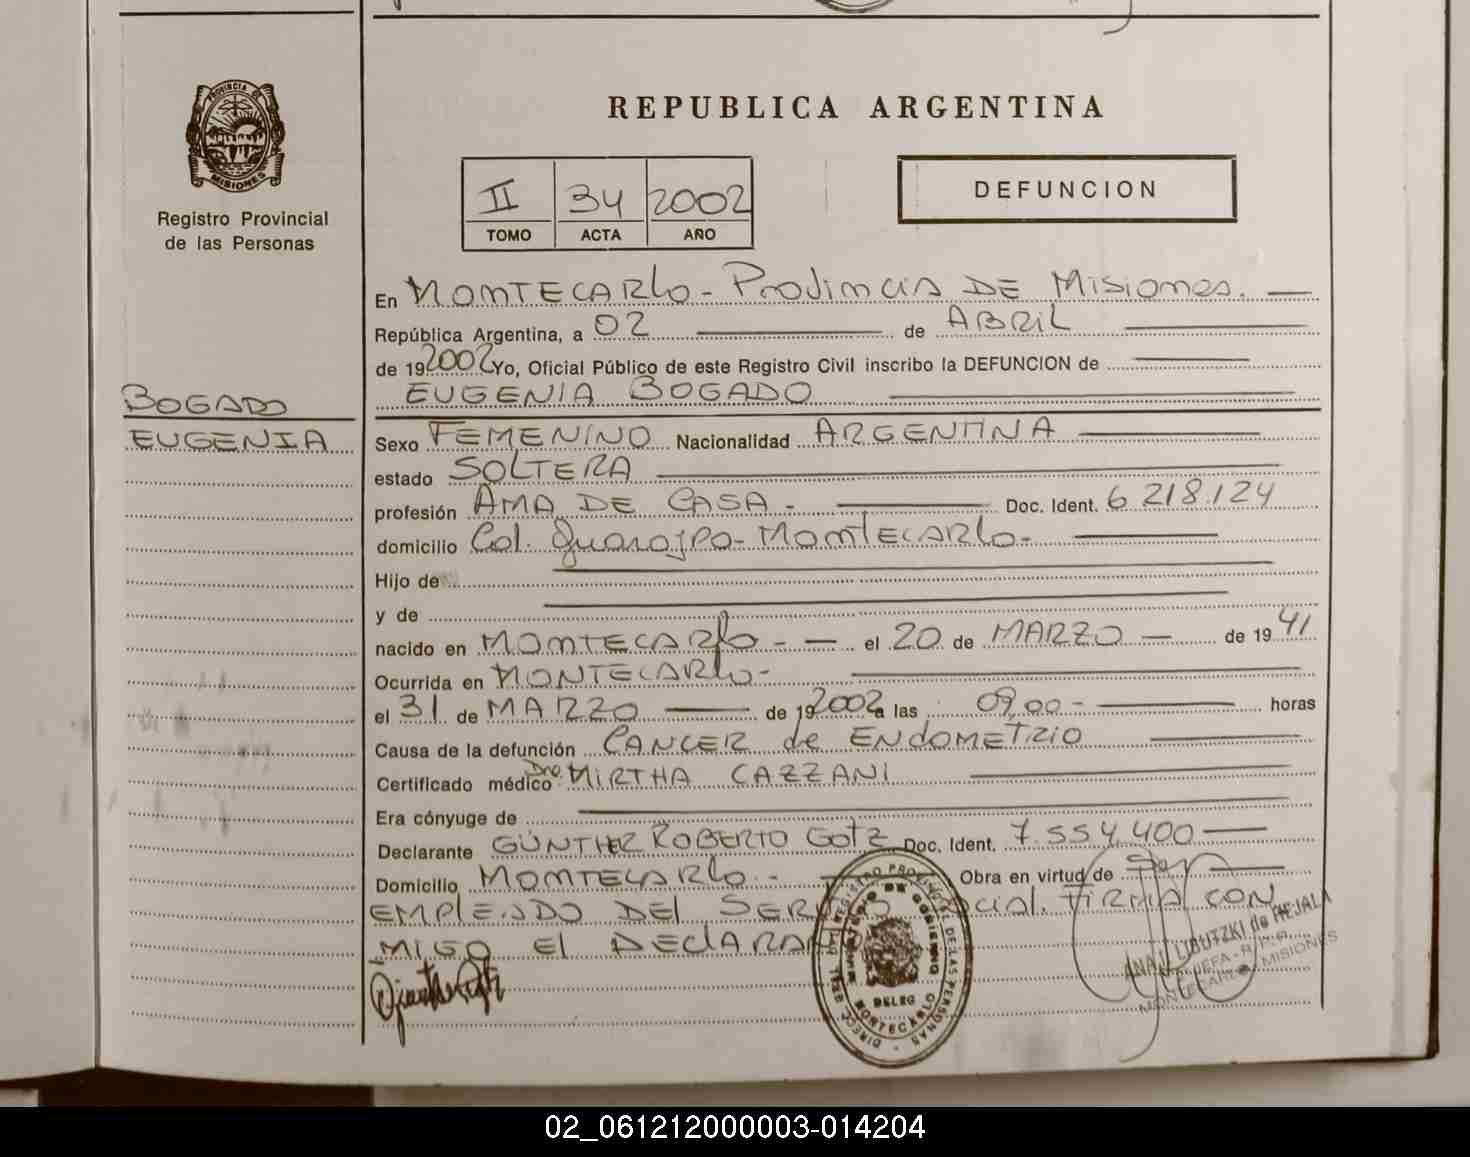 PROVINCIA DE
MISIONES
Registro Provincial
de las Personas
REPUBLICA ARGENTINA
II 34 2002
TOMO ACTA AÑO
DEFUNCION
En MONTECARLO - PROVINCIA DE MISIONES.
República Argentina, a 02 de ABRIL
de 192002 Yo, Oficial Público de este Registro Civil inscribo la DEFUNCION de
EUGENIA BOGADO
BOGADO
EUGENIA
Sexo FEMENINO Nacionalidad ARGENTINA
estado SOLTERA
profesión AMA DE CASA - Doc. Ident. 6 218.124
domicilio Col. Guaraypo - MONTECARLO -
Hijo de
y de
nacido en MONTECARLO - el 20 de MARZO de 1941
Ocurrida en MONTECARLO -
el 31 de MARZO de 192002 a las 09,00 - horas
Causa de la defunción CANCER de ENDOMETRIO
Certificado médico Dra. MIRTHA CAZZANI
Era cónyuge de
Declarante GÜNTHER ROBERTO GOTZ Doc. Ident. 7.554.400
Domicilio MONTECARLO - Obra en virtud de Ser
EMPLEADO DEL SER SOCIAL. FIRMA CON
MIGO El DEClARAN
DIREC. REGISTRO PROVINCIAL DE LAS PERSONAS
DE GOBIERNO
DELEG
MONTECARLO
LIBUTZKI de REJALA
MONTECARLO MISIONES
02_061212000003-014204